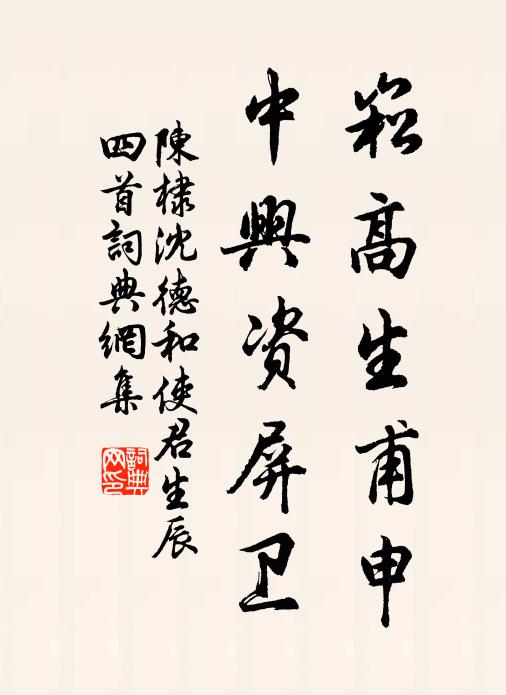 崧高生甫申
中興資屏卫
陳棣沈德和使君生辰
四首詞典網集
詞典网印